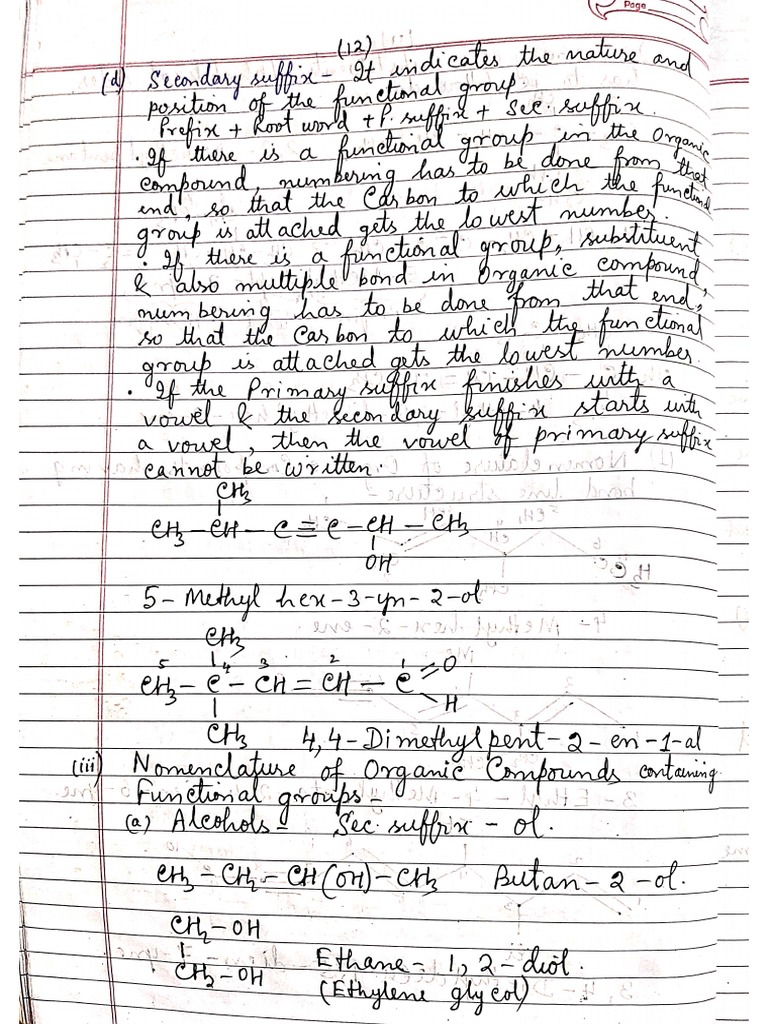 Page
(12)
(d) Secondary suffix - It indicates the nature and
position of the functional group
Prefix + Root word + P. suffix + Sec. suffix.
• If there is a functional group in the organic
compound, numbering has to be done from that
end, so that the Carbon to which the functional
group is attached gets the lowest number.
• If there is a functional group, substituent
& also multiple bond in organic compound,
numbering has to be done from that end,
so that the Carbon to which the functional
group is attached gets the lowest number
• If the Primary suffix finishes with a
vowel & the secondary suffix starts with
a vowel, then the vowel of primary suffix
cannot be written.
CH₃
CH₃ – CH – C ≡ C – CH – CH₃
OH
5 - Methyl hex - 3 - yn - 2 - ol
CH₃
5 4 3 2 1
CH₃ – C – CH = CH – C = O
H
CH₃ 4,4 - Dimethyl pent - 2 - en - 1 - al
(iii) Nomenclature of Organic Compounds containing
Functional groups -
(a) Alcohols - Sec. suffix - ol.
CH₃ – CH₂ – CH(OH) – CH₃ Butan - 2 - ol.
CH₂ – OH
CH₂ – OH Ethane - 1, 2 - diol.
(Ethylene glycol)